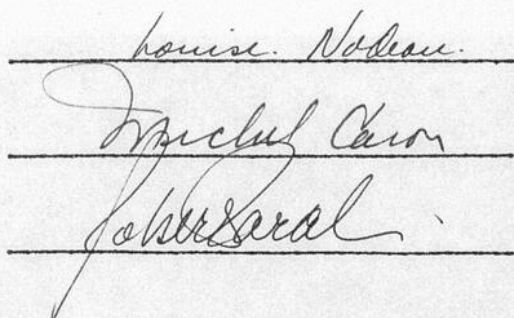 Louise. Nadeau.
Michel Caron
Robert